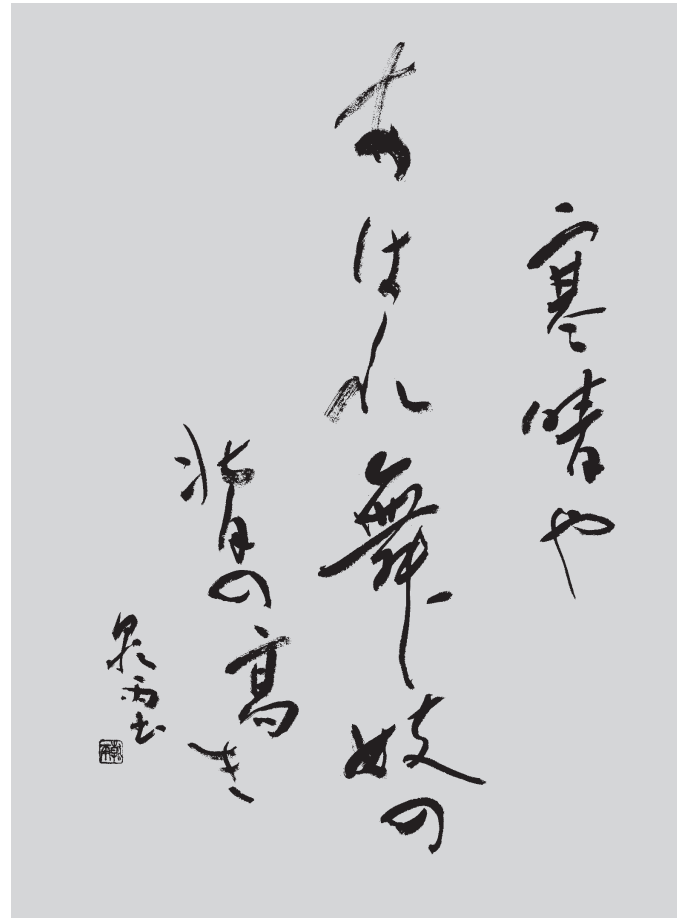 寒晴や
あはれ舞妓の
背の高き
泉雨書